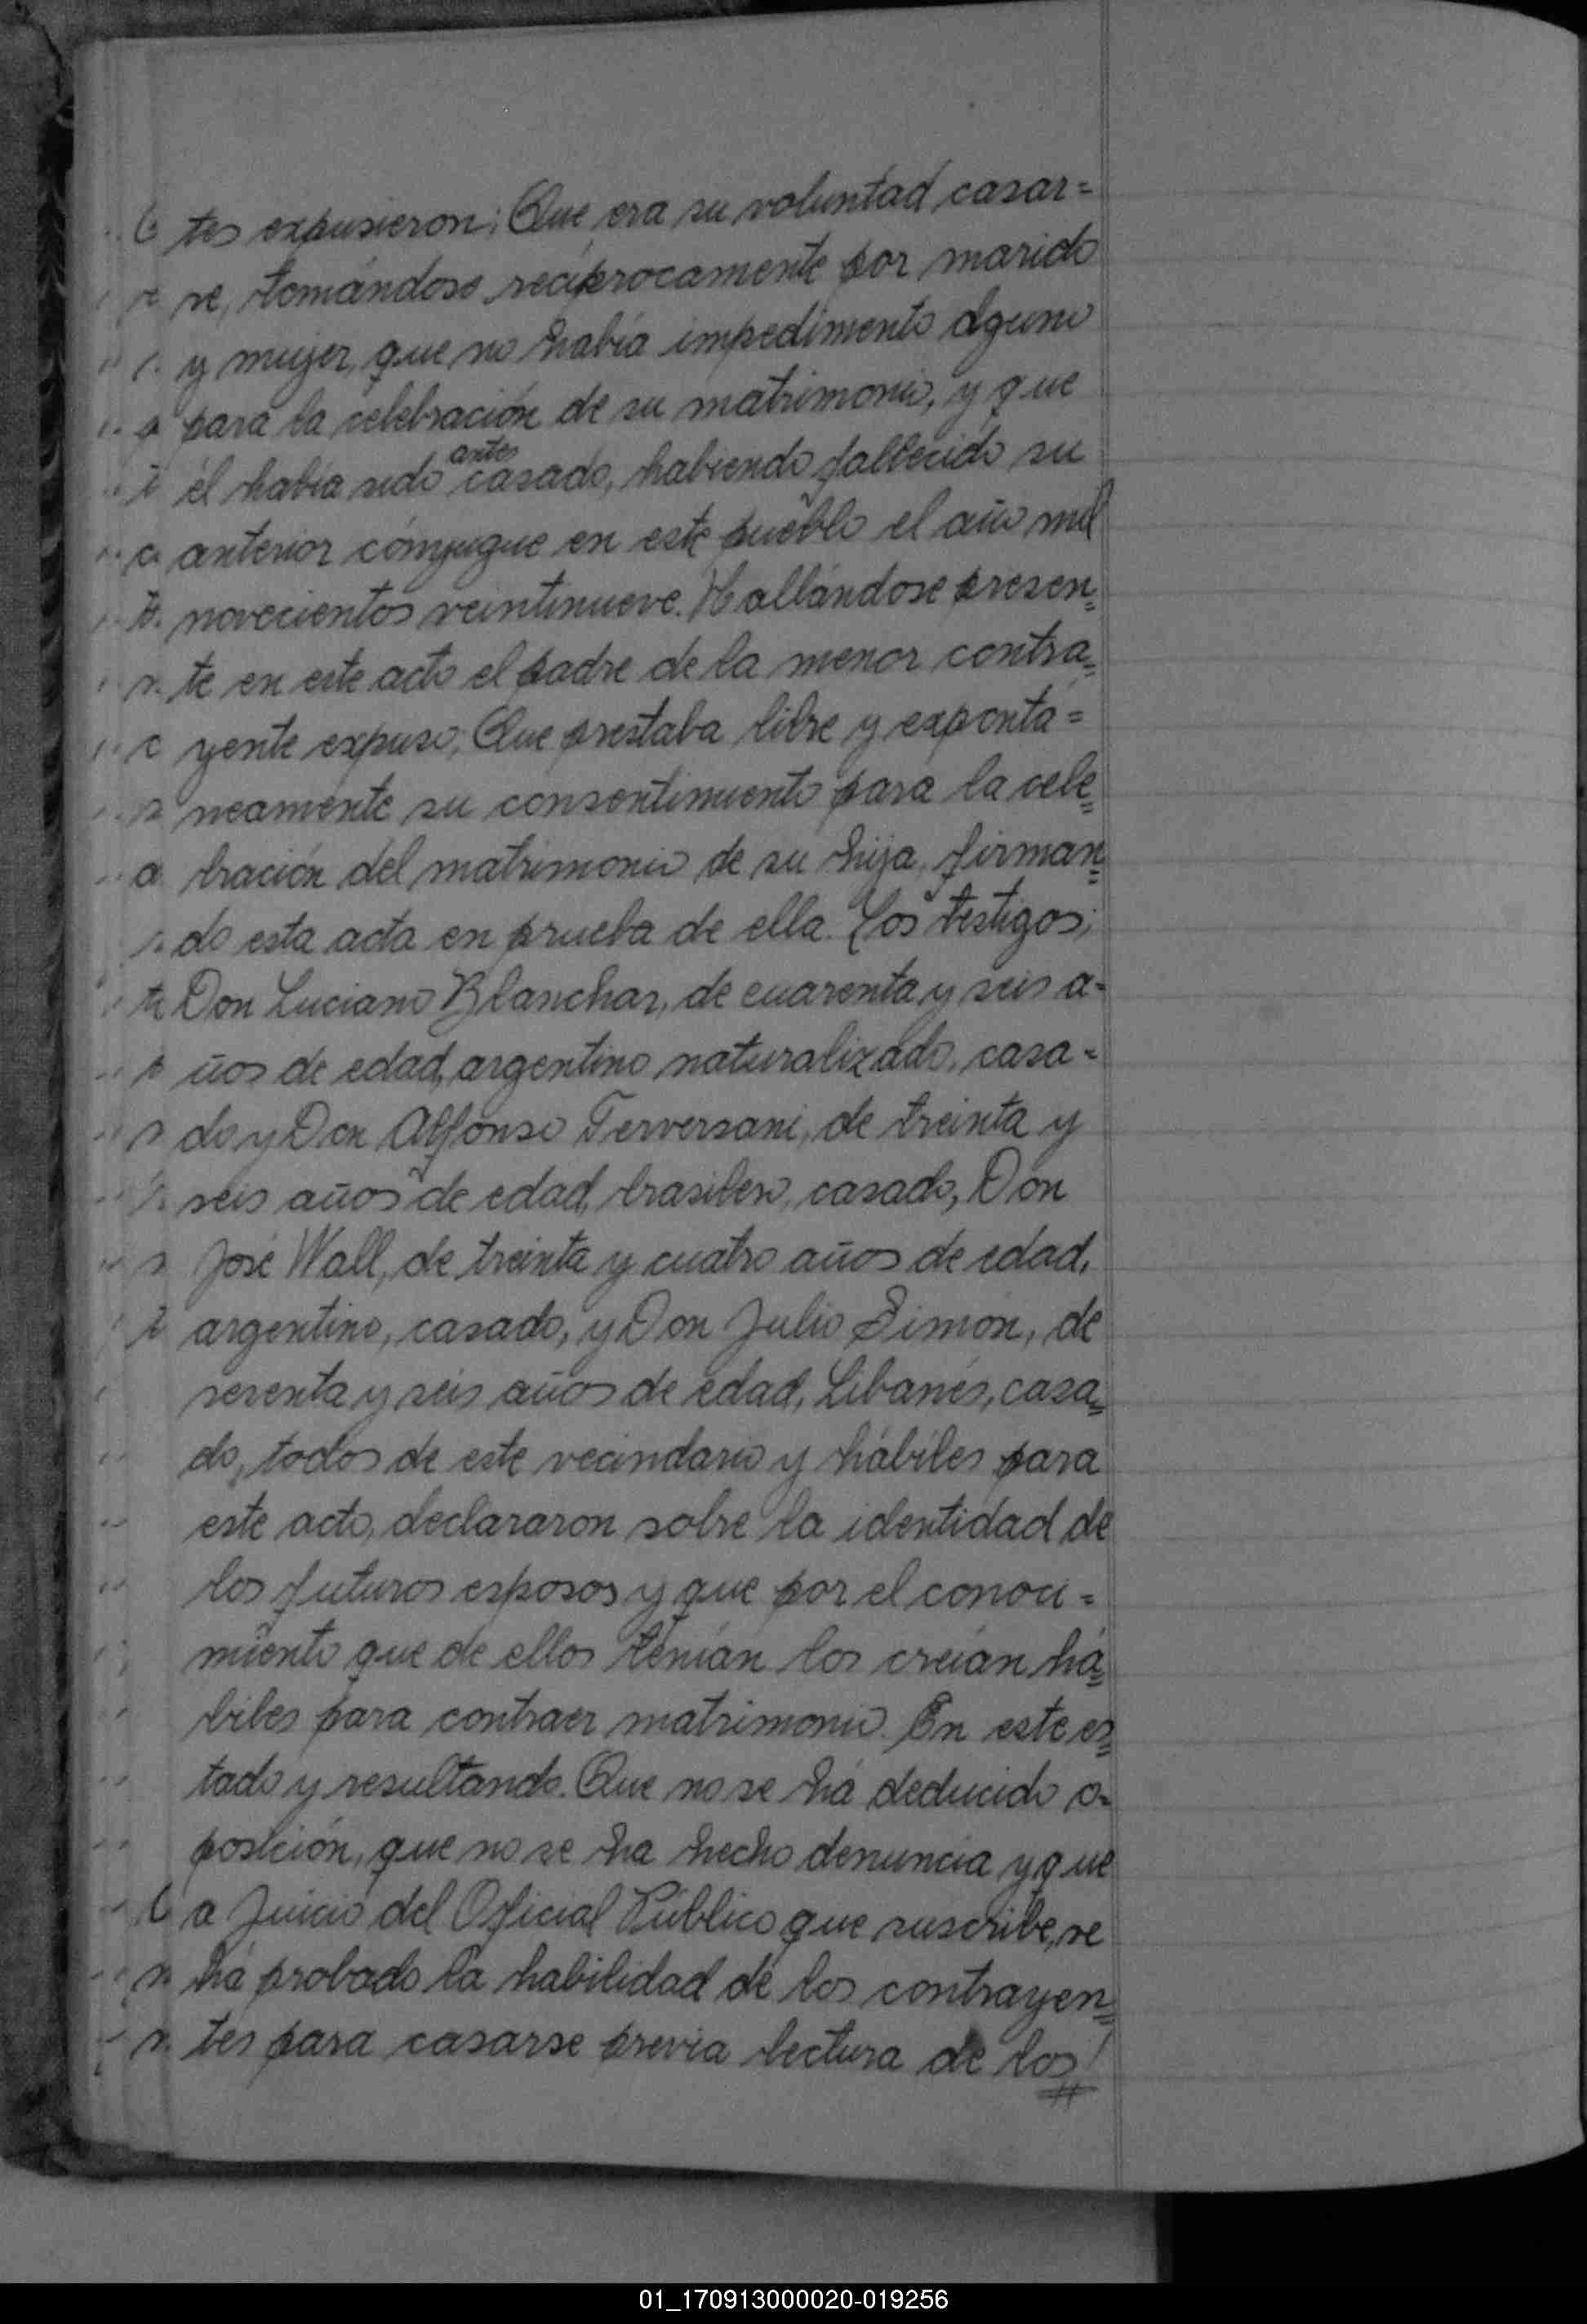 tes expusieron; Que era su voluntad casar=
se, tomándose recíprocamente por marido
y mujer, que no había impedimento alguno
para la celebración de su matrimonio, y que
antes
él había sido casado, habiendo fallecido su
anterior cónyugue en este pueblo el año mil
novecientos veintinueve. Hallándose presen=
te en este acto el padre de la menor contra=
yente expuso, Que prestaba libre y expontá=
neamente su consentimiento para la cele=
bración del matrimonio de su hija, firman=
do esta acta en prueba de ella. Los testigos;
Don Luciano Blanchar, de cuarenta y seis a=
ños de edad, argentino naturalizado, casa=
do y Don Alfonso Terversani, de treinta y
seis años de edad, brasilero, casado, Don
José Wall, de treinta y cuatro años de edad,
argentino, casado, y Don Julio Simón, de
sesenta y seis años de edad, Libanés, casa=
do, todos de este vecindario y hábiles para
este acto, declararon sobre la identidad de
los futuros esposos y que por el conoci=
miento que de ellos tenían los creían há=
biles para contraer matrimonio. En este es=
tado y resultando. Que no se há deducido o=
posición, que no se ha hecho denuncia y que
a Juicio del Oficial Público que suscribe, se
há probado la habilidad de los contrayen=
tes para casarse previa lectura de los
01_170913000020-019256